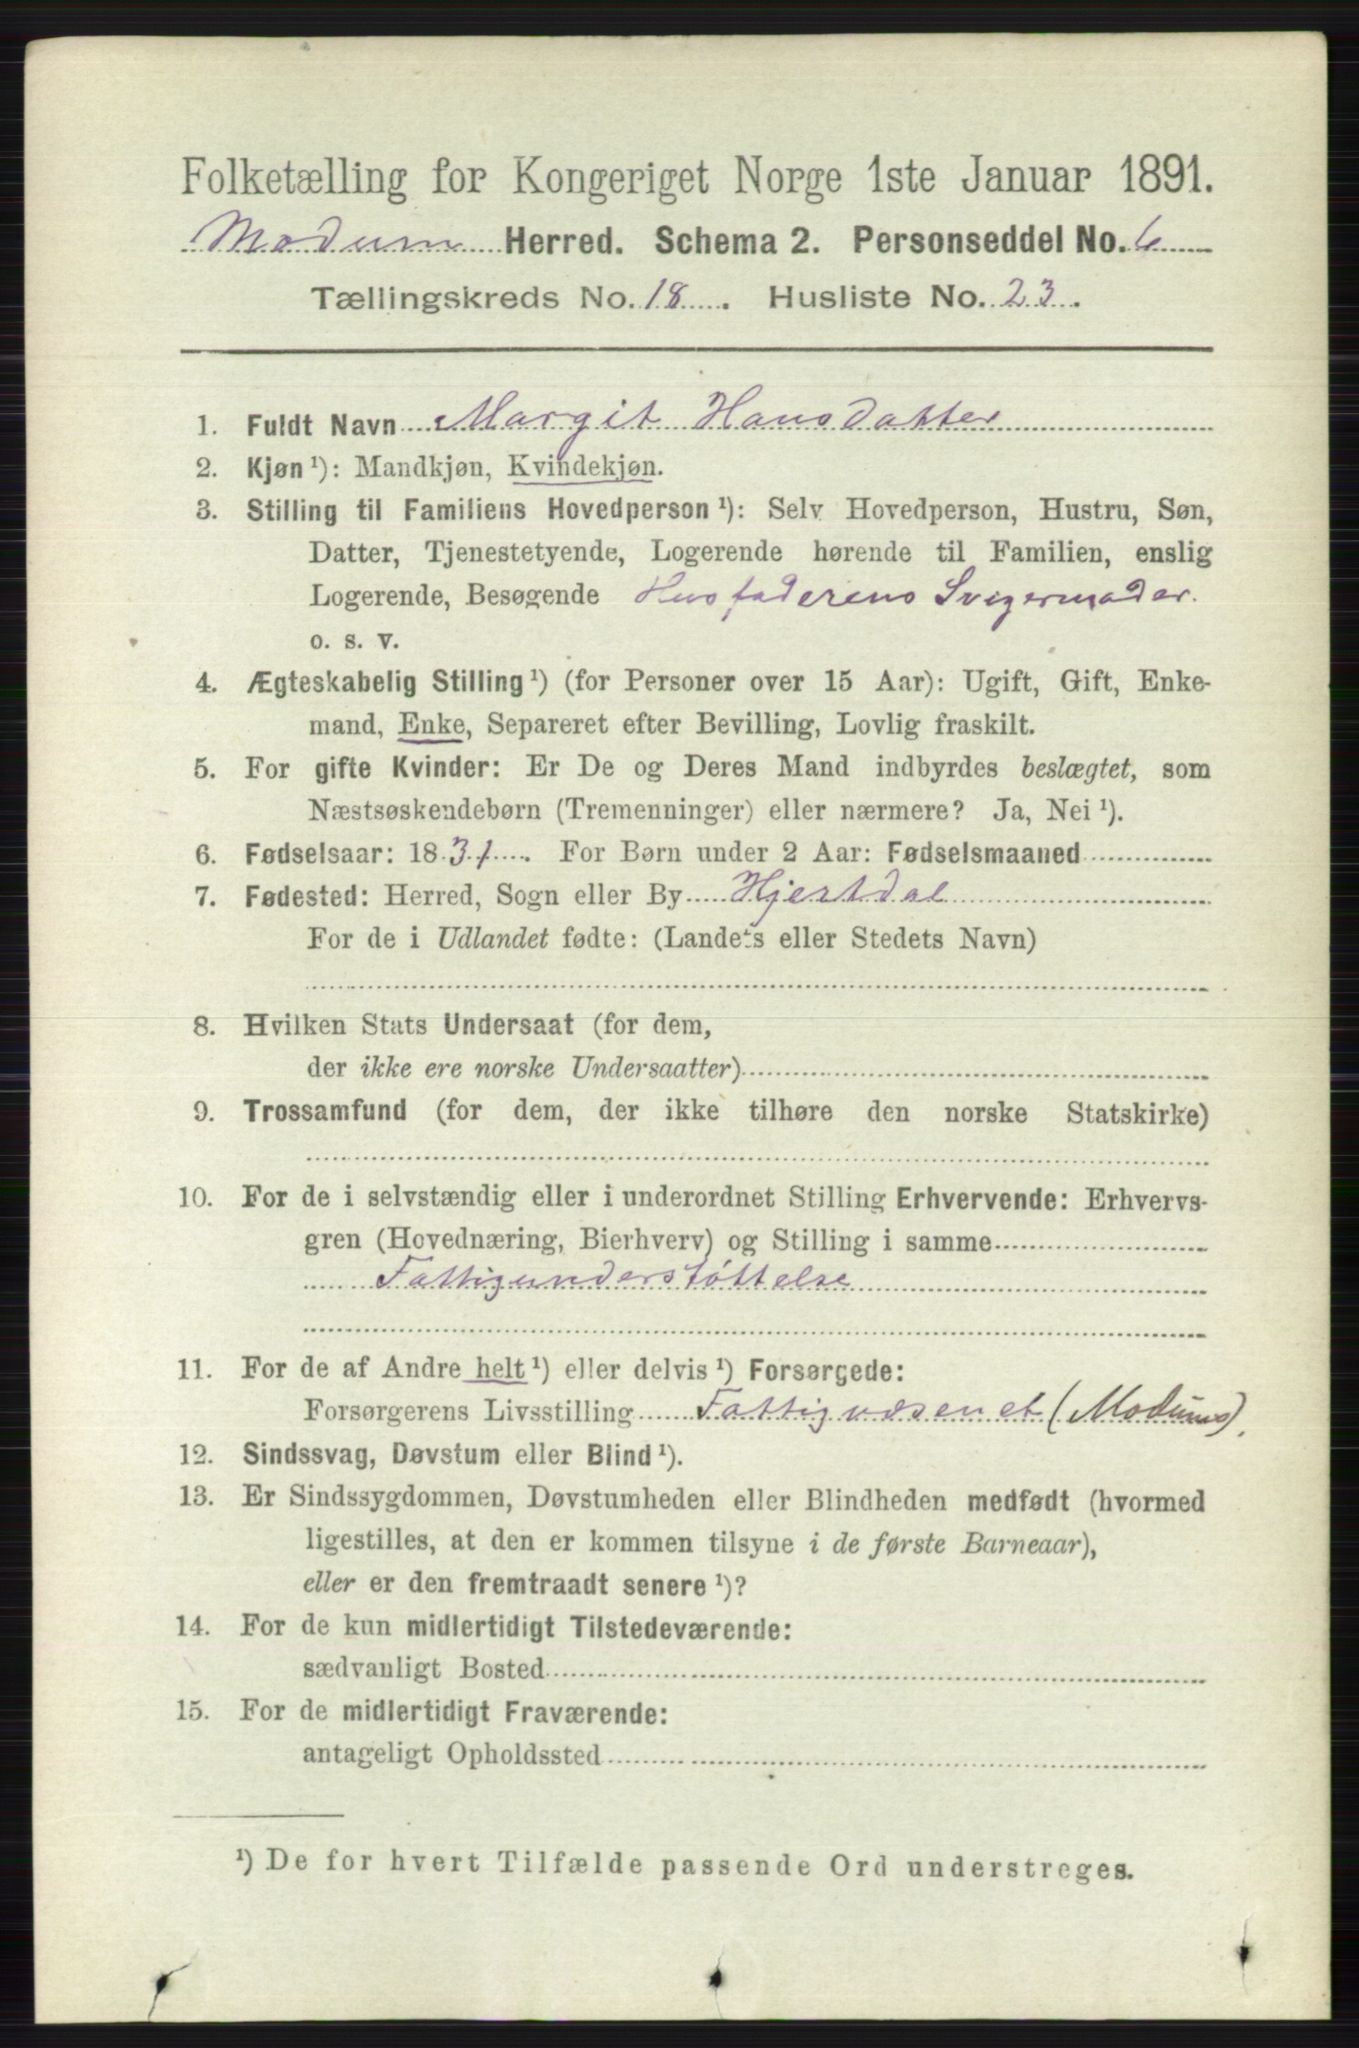 Folketælling for Kongeriget Norge 1ste Januar 1891.
Modum Herred. Schema 2. Personseddel No. 6
Tællingskreds No. 18. Husliste No. 23.
1. Fuldt Navn Margit Hansdatter
2. Kjøn¹): Mandkjøn, Kvindekjøn.
3. Stilling til Familiens Hovedperson¹): Selv Hovedperson, Hustru, Søn,
Datter, Tjenestetyende, Logerende hørende til Familien, enslig
Logerende, Besøgende Husfaderens Svigermoder.
o. s. v.
4. Ægteskabelig Stilling¹) (for Personer over 15 Aar): Ugift, Gift, Enke-
mand, Enke, Separeret efter Bevilling, Lovlig fraskilt.
5. For gifte Kvinder: Er De og Deres Mand indbyrdes beslægtet, som
Næstsøskendebørn (Tremenninger) eller nærmere? Ja, Nei¹).
6. Fødselsaar: 1831. For Børn under 2 Aar: Fødselsmaaned
7. Fødested: Herred, Sogn eller By Hjertdal
For de i Udlandet fødte: (Landets eller Stedets Navn)
8. Hvilken Stats Undersaat (for dem,
der ikke ere norske Undersaatter)
9. Trossamfund (for dem, der ikke tilhøre den norske Statskirke)
10. For de i selvstændig eller i underordnet Stilling Erhvervende: Erhvervs-
gren (Hovednæring, Bierhverv) og Stilling i samme
Fattigunderstøttelse
11. For de af Andre helt¹) eller delvis¹) Forsørgede:
Forsørgerens Livsstilling Fattigvæsenet (Modums).
12. Sindssvag, Døvstum eller Blind¹).
13. Er Sindssygdommen, Døvstumheden eller Blindheden medfødt (hvormed
ligestilles, at den er kommen tilsyne i de første Barneaar),
eller er den fremtraadt senere¹)?
14. For de kun midlertidigt Tilstedeværende:
sædvanligt Bosted
15. For de midlertidigt Fraværende:
antageligt Opholdssted
¹) De for hvert Tilfælde passende Ord understreges.